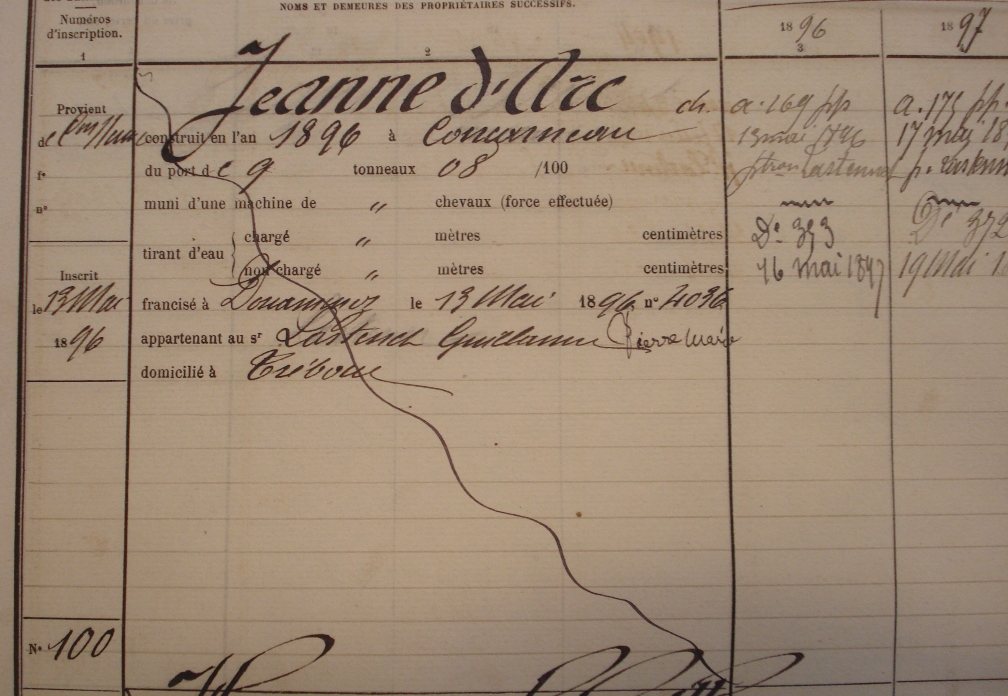 NOMS ET DEMEURES DES PROPRIÉTAIRES SUCCESSIFS.
Numéros
d'inscription.
1
2
1896
3
1897
Jeanne d'Arc ch.
Provient
construit en l'an 1896 à Concarneau
du port de 9 tonneaux 08 /100
muni d'une machine de " chevaux (force effectuée)
tirant d'eau
chargé " mètres centimètres
non chargé " mètres centimètres
Inscrit
le 13 Mai
1896
francisé à Douarnenez le 13 Mai 1896 n° 4036
appartenant au sr Guillaume Pierre Marie
domicilié à Tréboul
a. 169 pp
13 mai 1896
Dt 393
16 mai 1897
a. 173 pp
17 mai
Dt 372
19 Mai
N° 100